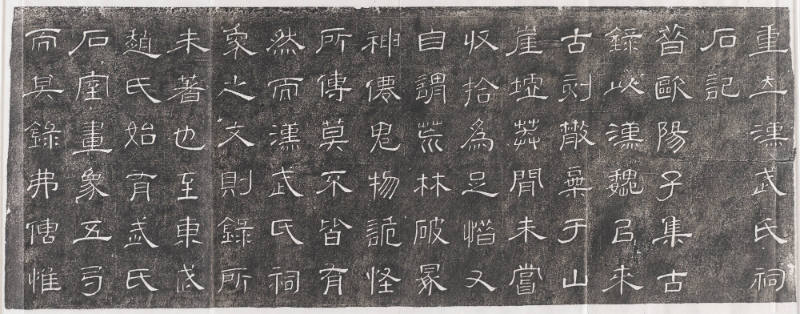 重立漢武氏祠
石記
昔歐陽子集古
錄以漢魏㠯來
古刻散棄于山
崖墟莽間未嘗
收拾為足惜又
自謂荒林破冢
神僊鬼物詭怪
所傳莫不皆有
然而漢武氏祠
象之文則錄所
未著也至東武
趙氏始有武氏
石室畫象五弓
而其錄弗傳惟